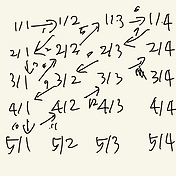 1/1 1/2 1/3 1/4
2/1 2/2 2/3 2/4
3/1 3/2 3/3 3/4
4/1 4/2 4/3 4/4
5/1 5/2 5/3 5/4